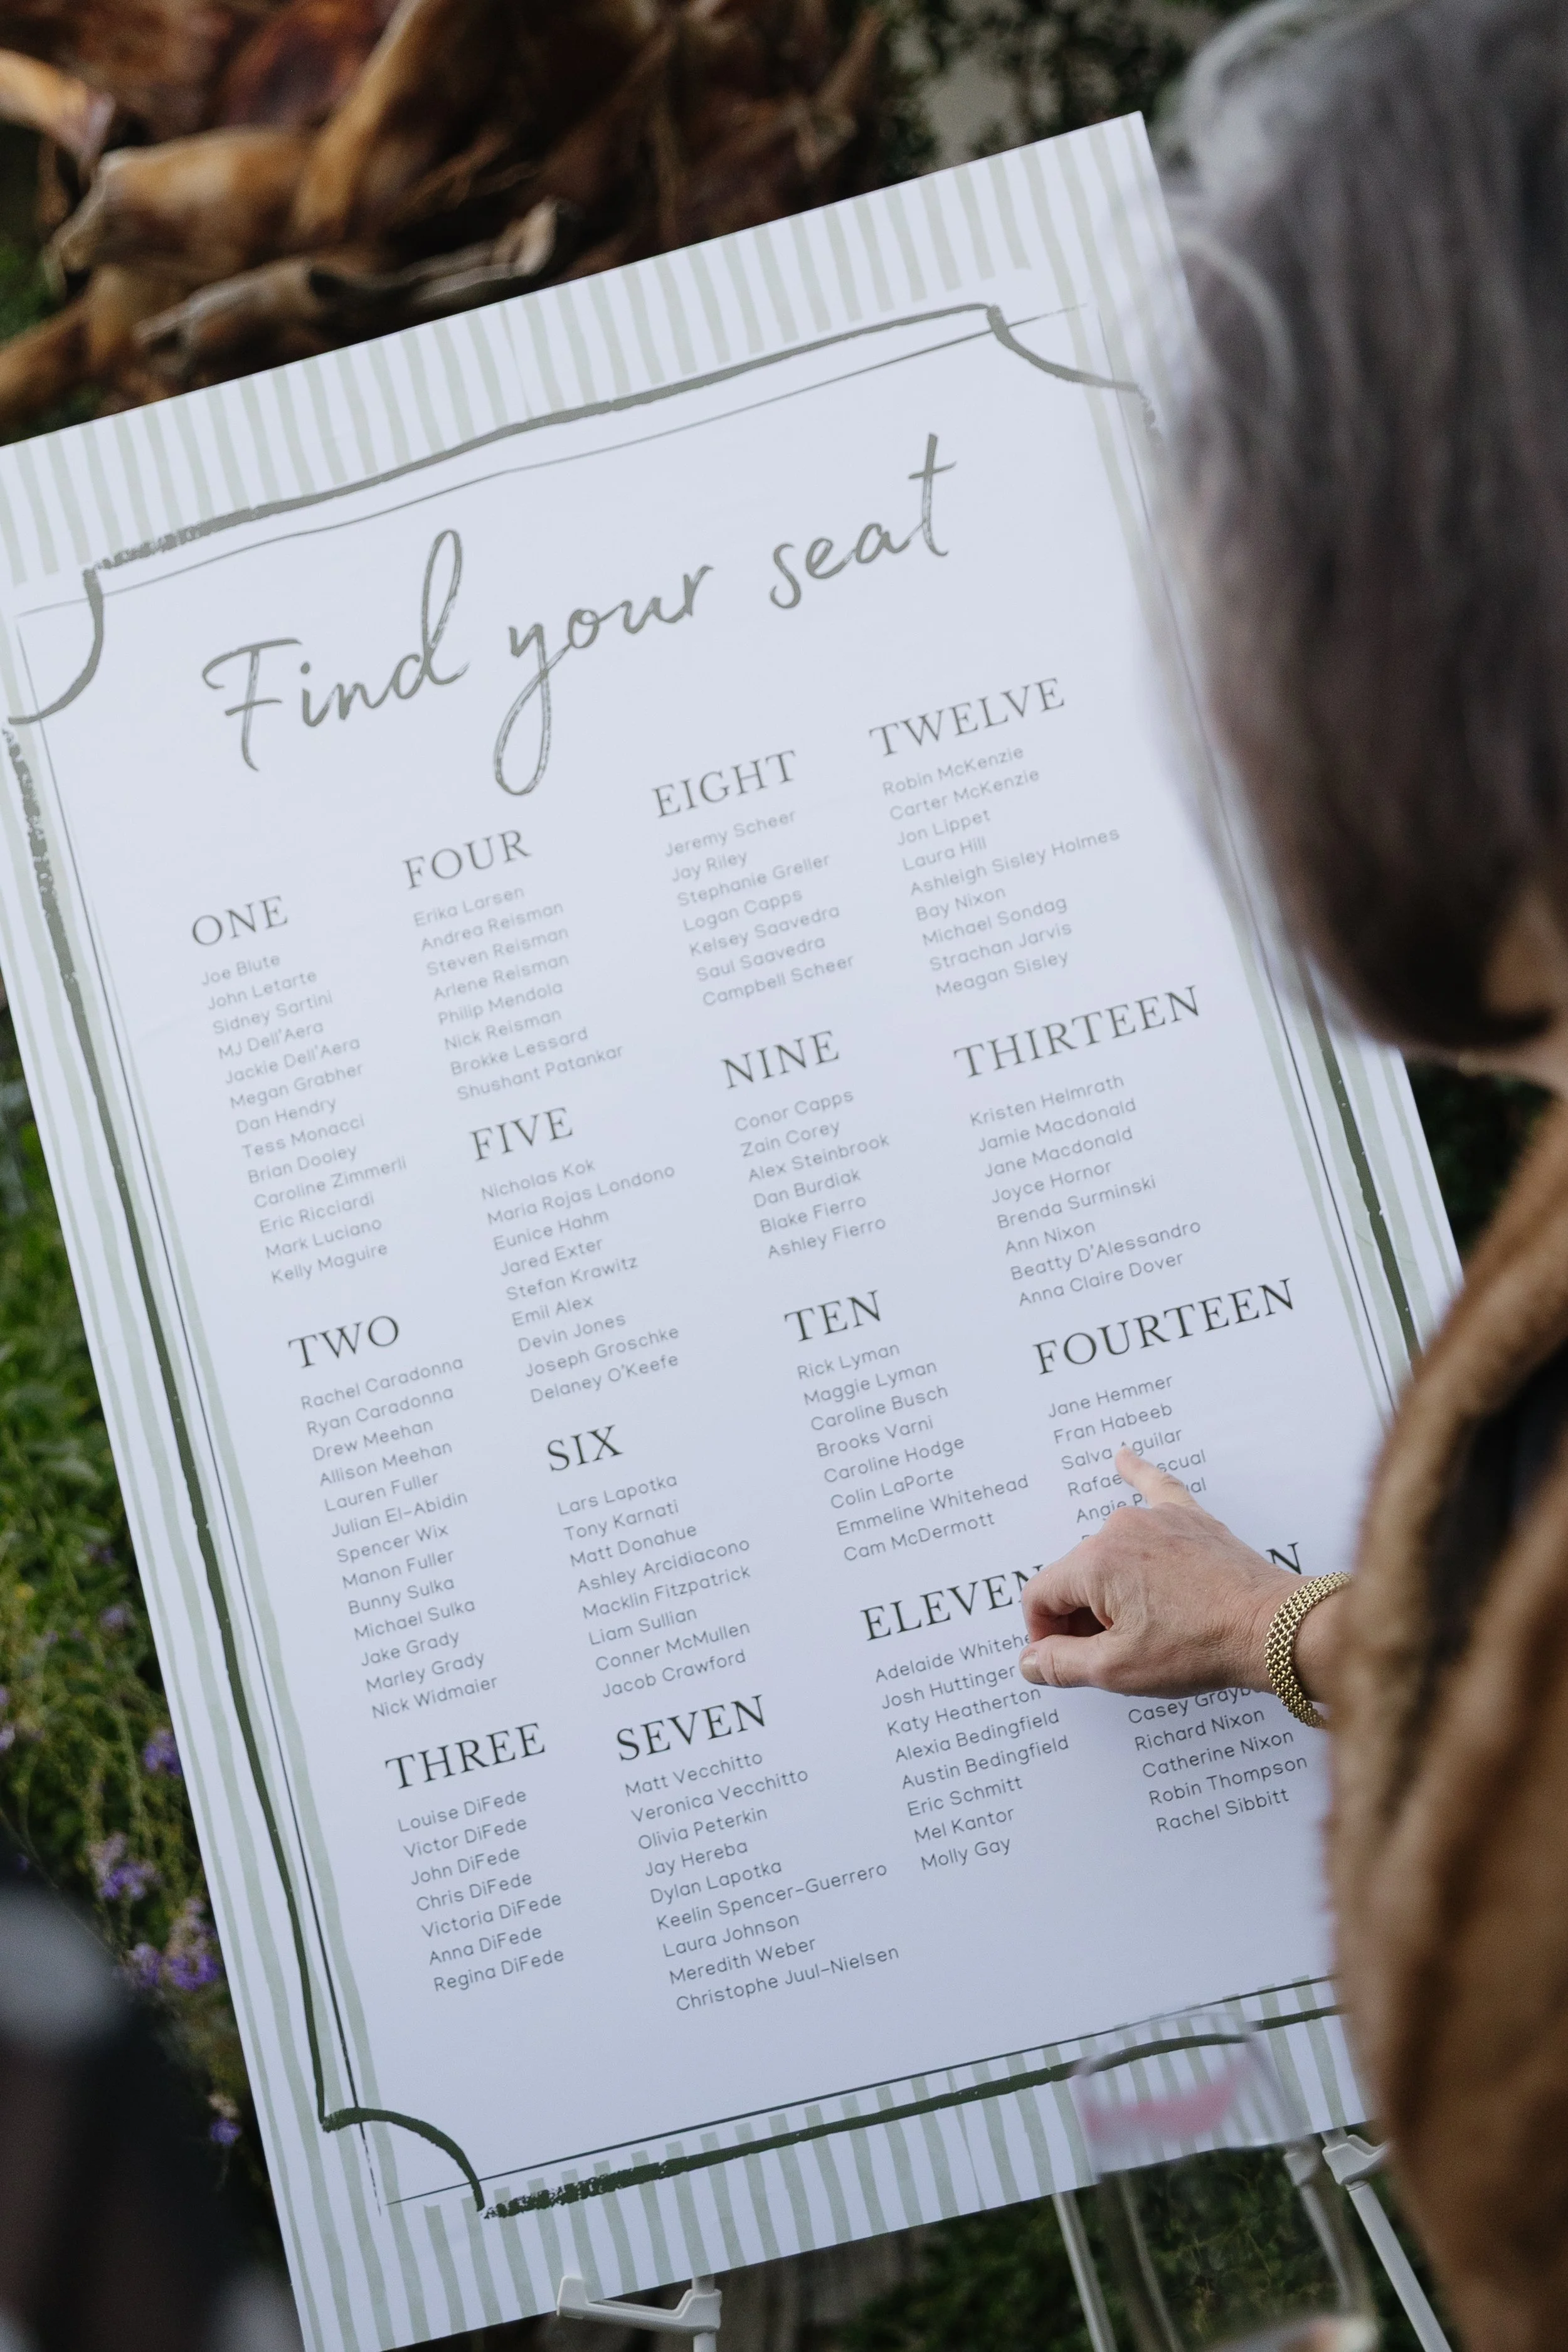 Find your seat
ONE
Joe Blute
John Letarte
Sidney Sartini
MJ Dell'Aera
Jackie Dell'Aera
Megan Grabher
Dan Hendry
Tess Monacci
Brian Dooley
Caroline Zimmerli
Eric Ricciardi
Mark Luciano
Kelly Maguire
TWO
Rachel Caradonna
Ryan Caradonna
Drew Meehan
Allison Meehan
Lauren Fuller
Julian El-Abidin
Spencer Wix
Manon Fuller
Bunny Sulka
Michael Sulka
Jake Grady
Marley Grady
Nick Widmaier
THREE
Louise DiFede
Victor DiFede
John DiFede
Chris DiFede
Victoria DiFede
Anna DiFede
Regina DiFede
FOUR
Erika Larsen
Andrea Reisman
Steven Reisman
Arlene Reisman
Philip Mendola
Nick Reisman
Brokke Lessard
Shushant Patankar
FIVE
Nicholas Kok
Maria Rojas Londono
Eunice Hahm
Jared Exter
Stefan Krawitz
Emil Alex
Devin Jones
Joseph Groschke
Delaney O'Keefe
SIX
Lars Lapotka
Tony Karnati
Matt Donahue
Ashley Arcidiacono
Macklin Fitzpatrick
Liam Sullian
Conner McMullen
Jacob Crawford
SEVEN
Matt Vecchitto
Veronica Vecchitto
Olivia Peterkin
Jay Hereba
Dylan Lapotka
Keelin Spencer-Guerrero
Laura Johnson
Meredith Weber
Christophe Juul-Nielsen
EIGHT
Jeremy Scheer
Jay Riley
Stephanie Greller
Logan Capps
Kelsey Saavedra
Saul Saavedra
Campbell Scheer
NINE
Conor Capps
Zain Corey
Alex Steinbrook
Dan Burdiak
Blake Fierro
Ashley Fierro
TEN
Rick Lyman
Maggie Lyman
Caroline Busch
Brooks Varni
Caroline Hodge
Colin LaPorte
Emmeline Whitehead
Cam McDermott
ELEVEN
Adelaide
Josh Huttinger
Katy Heatherton
Alexia Bedingfield
Austin Bedingfield
Eric Schmitt
Mel Kantor
Molly Gay
TWELVE
Robin McKenzie
Carter McKenzie
Jon Lippet
Laura Hill
Ashleigh Sisley Holmes
Bay Nixon
Michael Sondag
Strachan Jarvis
Meagan Sisley
THIRTEEN
Kristen Helmrath
Jamie Macdonald
Jane Macdonald
Joyce Hornor
Brenda Surminski
Ann Nixon
Beatty D'Alessandro
Anna Claire Dover
FOURTEEN
Jane Hemmer
Fran Habeeb
Salva Aguilar
Angie
Casey
Richard Nixon
Catherine Nixon
Robin Thompson
Rachel Sibbitt